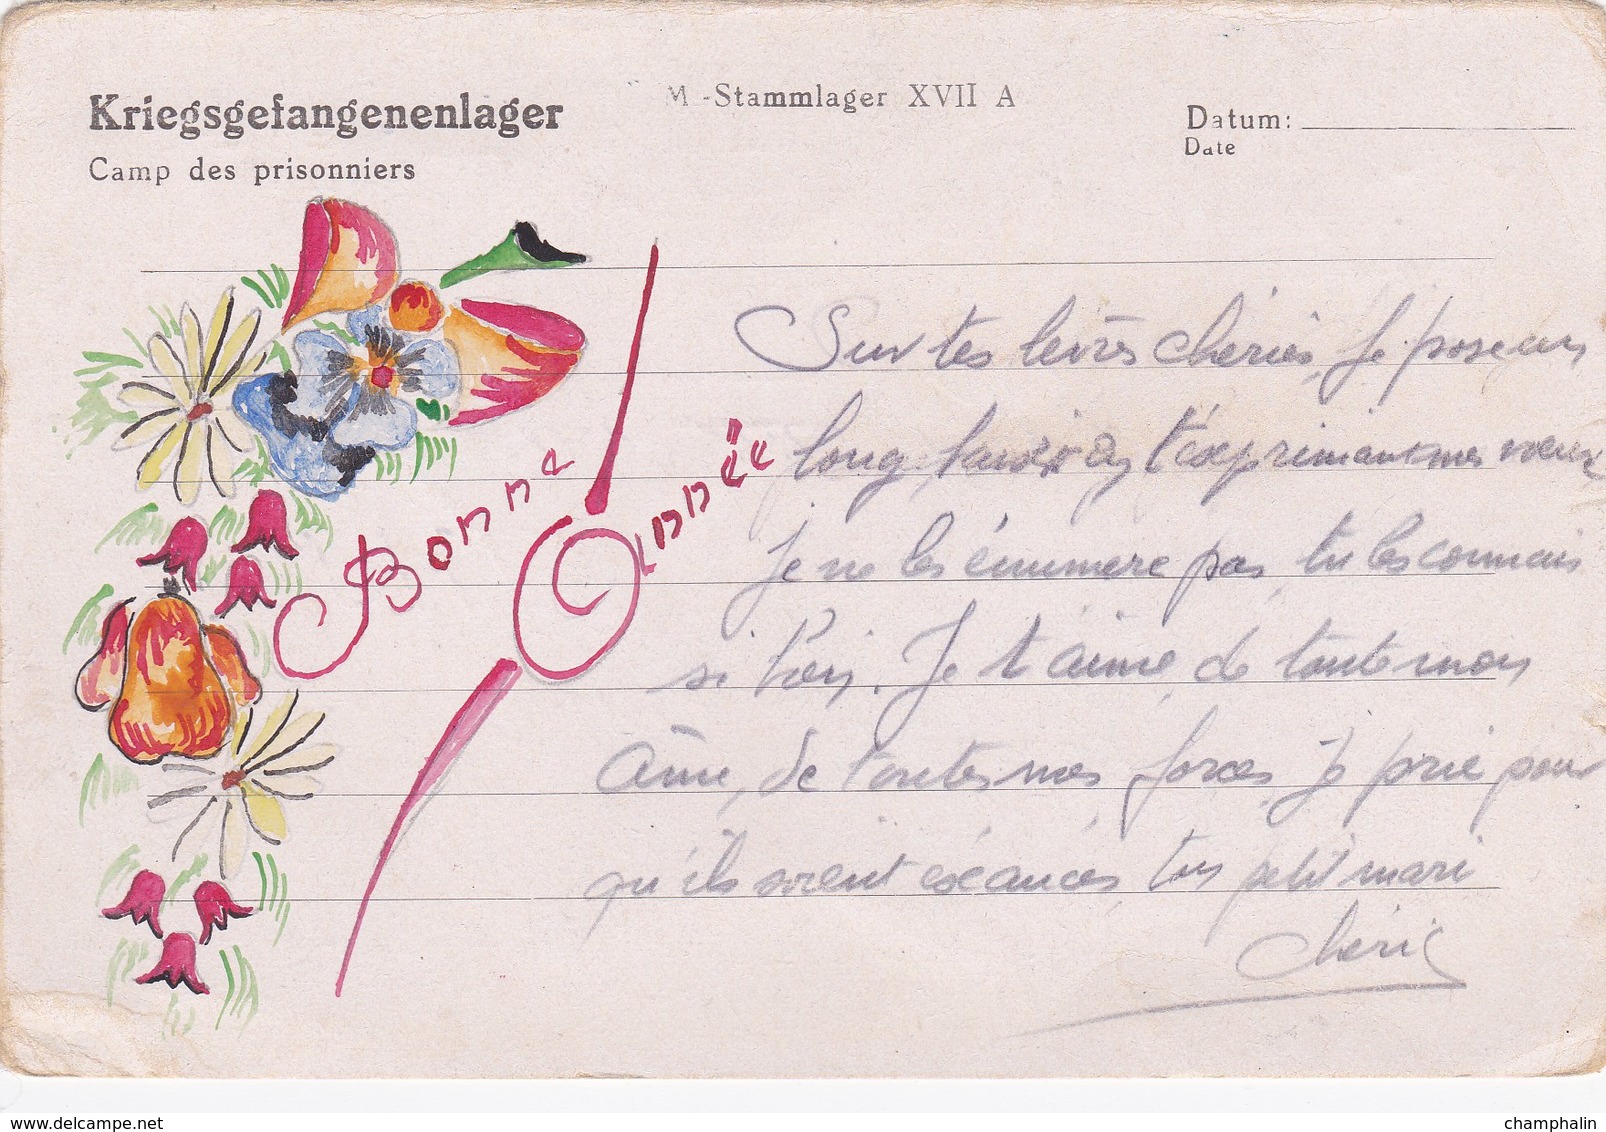 Kriegsgefangenenlager
Camp des prisonniers
M -Stammlager XVII A
Datum:
Date
Bonne Année
Sur tes lèvres chéries, je pose un
long baiser en t'exprimant mes vœux
je ne les énumère pas, tu les connais
si bien. Je t'aime de toute mon
âme, de toutes mes forces, je prie pour
qu'ils soient exéaucés, ton petit mari
chéri
delcampe.net
champhalin